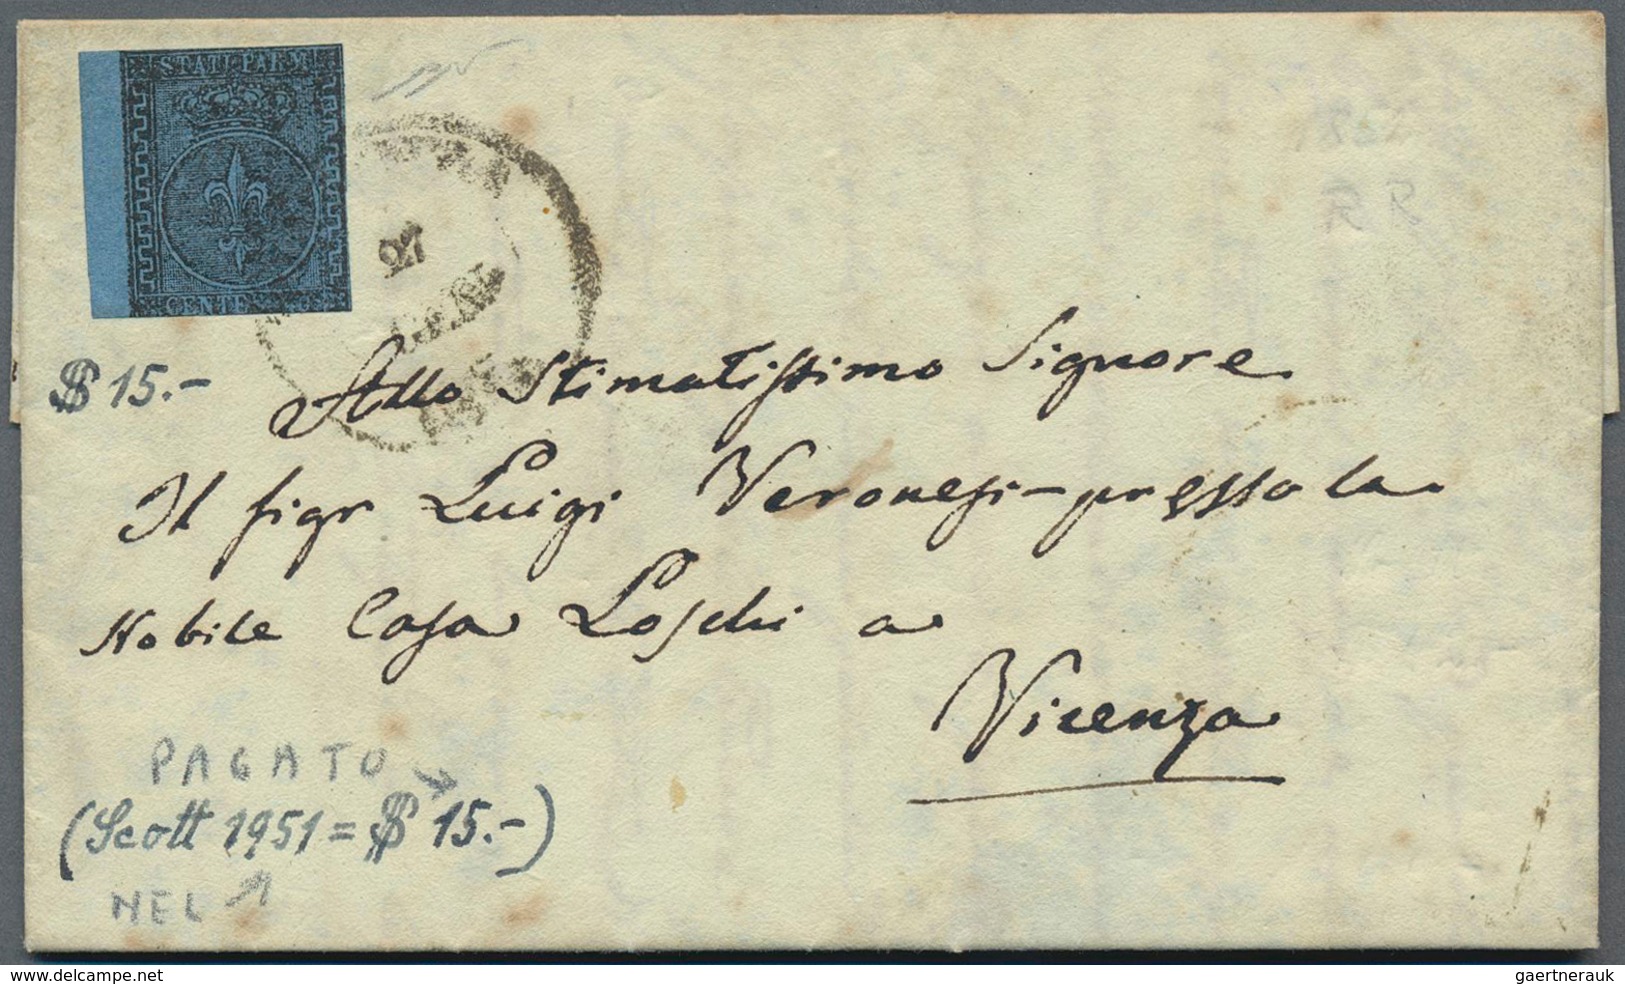 STATI PARM.
CENTES. 40
27
$ 15.-
Allo Stimatissimo Signore
Il sigr Luigi Veronesi-presso la
Nobile Casa Loschi a
Vicenza
PAGATO
(Scott 1951 = $ 15.-)
NEL
www.delcampe.net
gaertnerauk